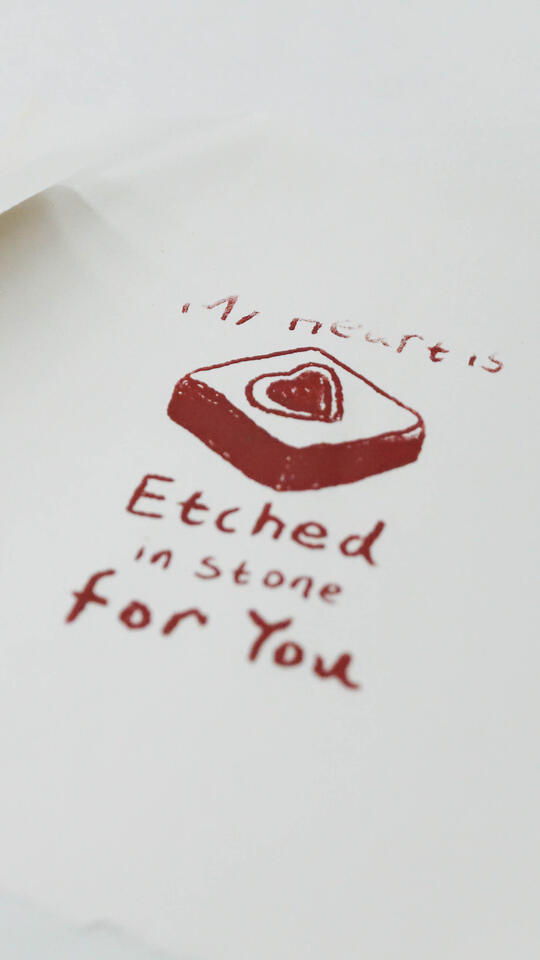 My Heart is
Etched
in stone
for You